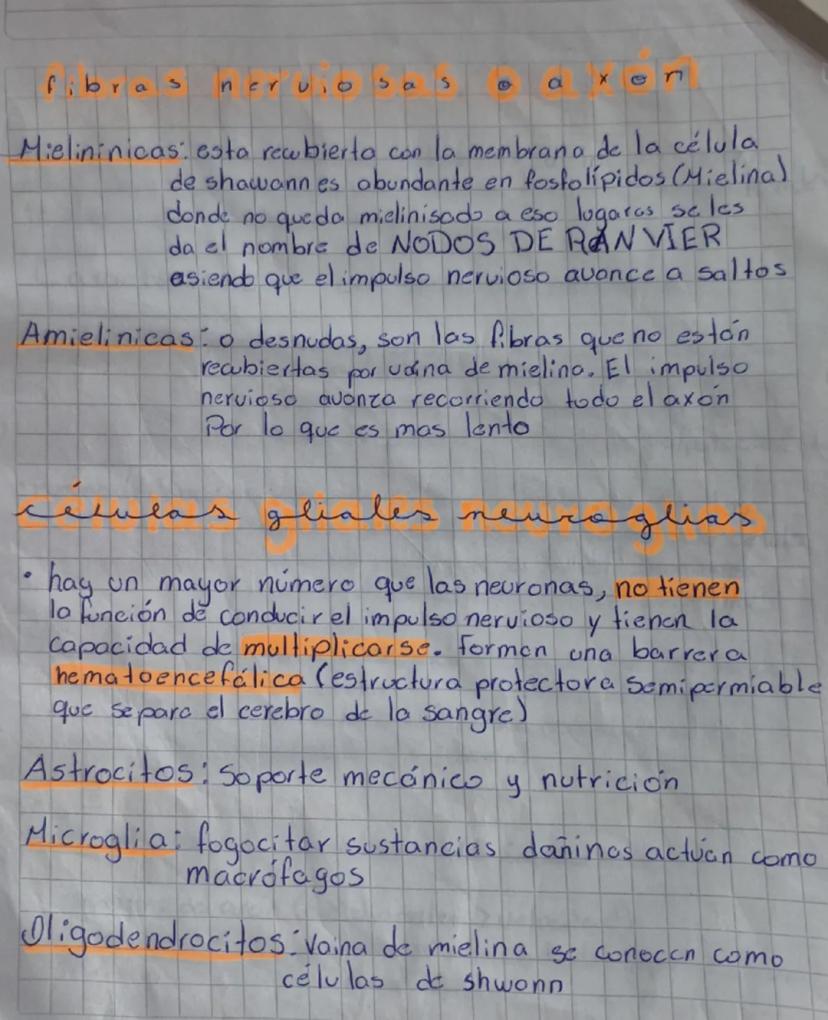 fibras nerviosas o axón
Mielininicas: esta recubierta con la membrana de la célula
de shawann es abundante en fosfolípidos (Mielina)
donde no queda mielinisado a eso lugares se les
da el nombre de NODOS DE RANVIER
asiendo que el impulso nervioso avance a saltos
Amielinicas: o desnudas, son las fibras que no están
recubiertas por vaina de mielina. El impulso
nervioso avanza recorriendo todo el axón
Por lo que es mas lento
células gliales neuroglias
• hay un mayor número que las neuronas, no tienen
la función de conducir el impulso nervioso y tienen la
capacidad de multiplicarse. Formen una barrera
hematoencefálica (estructura protectora semipermiable
que separa el cerebro de la sangre)
Astrocitos: soporte mecánico y nutrición
Microglia: fagocitar sustancias dañinas actúan como
macrófagos
Oligodendrocitos: Vaina de mielina se conocen como
células de shwann